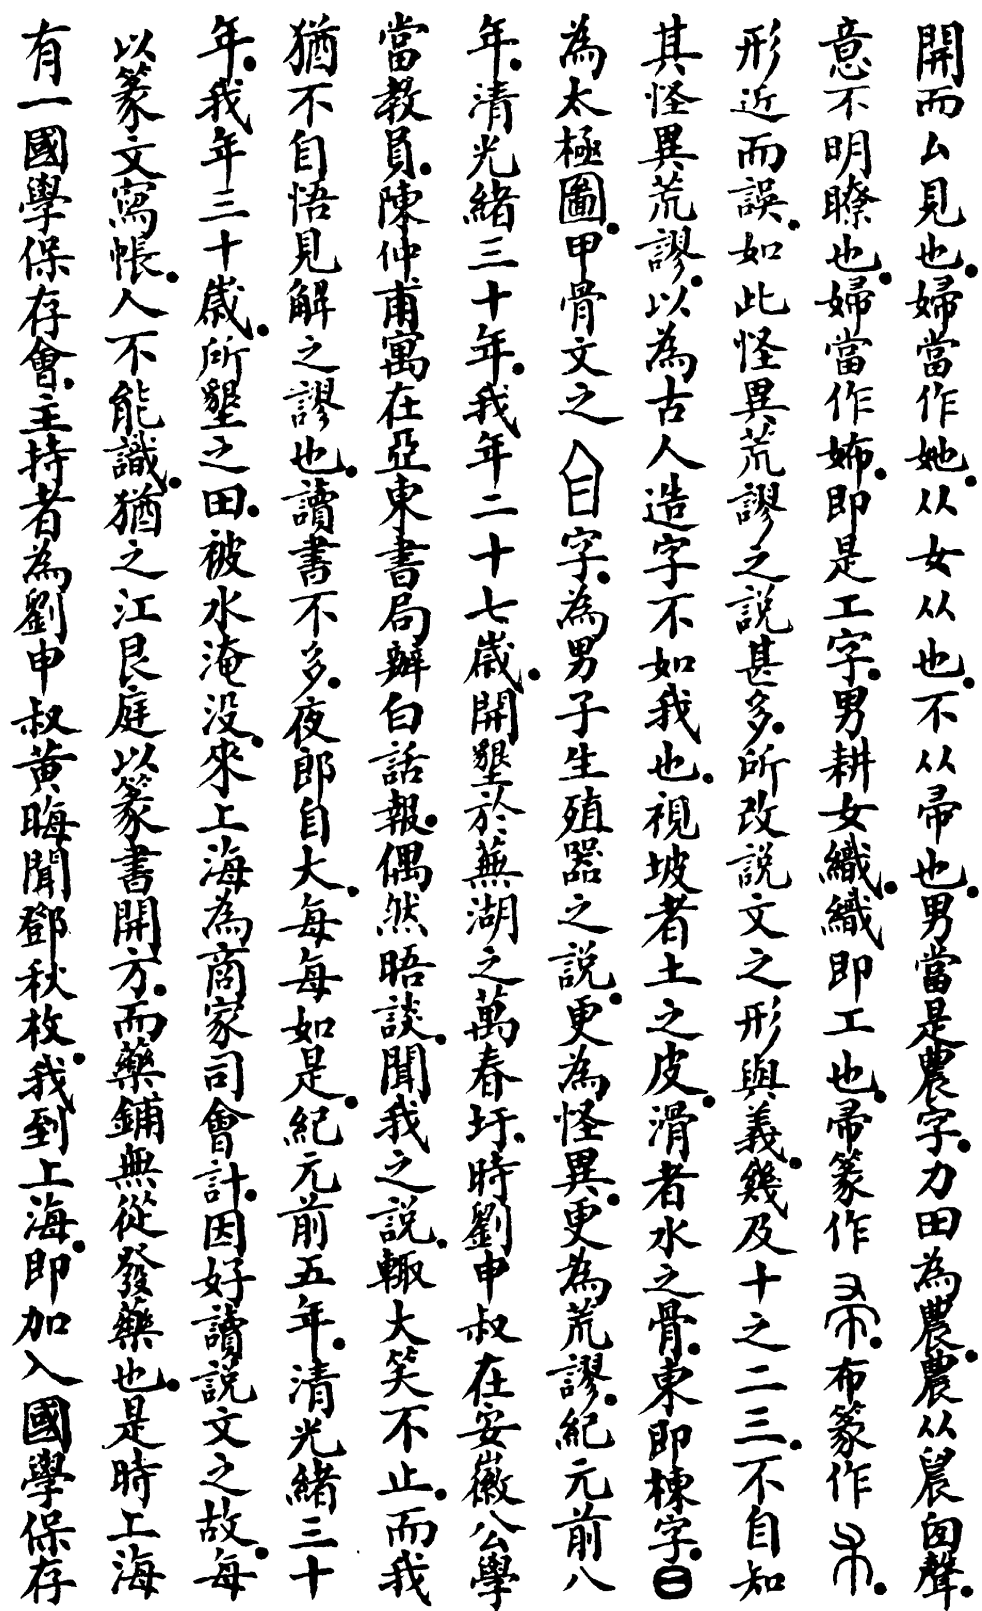 開而厶見也婦當作她从女从也不从帚也男當是農字力田為農農从晨囟聲
意不明瞭也婦當作㛍即是工字男耕女織織即工也帚篆作布篆作
形近而誤如此怪異荒謬之説甚多所改説文之形與義幾及十之二三不自知
其怪異荒謬以為古人造字不如我也視坡者土之皮滑者水之骨東即棟字日
為太極圖甲骨文之字為男子生殖器之説更為怪異更為荒謬紀元前八
年清光緒三十年我年二十七歲開墾於蕪湖之萬春圩時劉申叔在安徽公學
當教員陳仲甫寓在亞東書局辦白話報偶然晤談聞我之説輙大笑不止而我
猶不自悟見解之謬也讀書不多夜郎自大每每如是紀元前五年清光緒三十
年我年三十歲所墾之田被水淹没來上海為商家司會計因好讀説文之故每
以篆文寫帳人不能識猶之江艮庭以篆書開方而藥鋪無從發藥也是時上海
有一國學保存會主持者為劉申叔黄晦聞鄧秋枚我到上海即加入國學保存